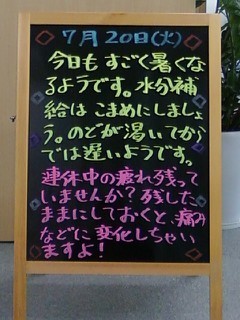 7月20日(火)
今日も すごく暑くな
るようです。水分補
給は こまめにしましょ
う。のどが渇いてから
では遅いようです。
連休中の疲れ残って
いませんか?残した
ままにしておくと、痛み
などに変化しちゃい
ますよ!